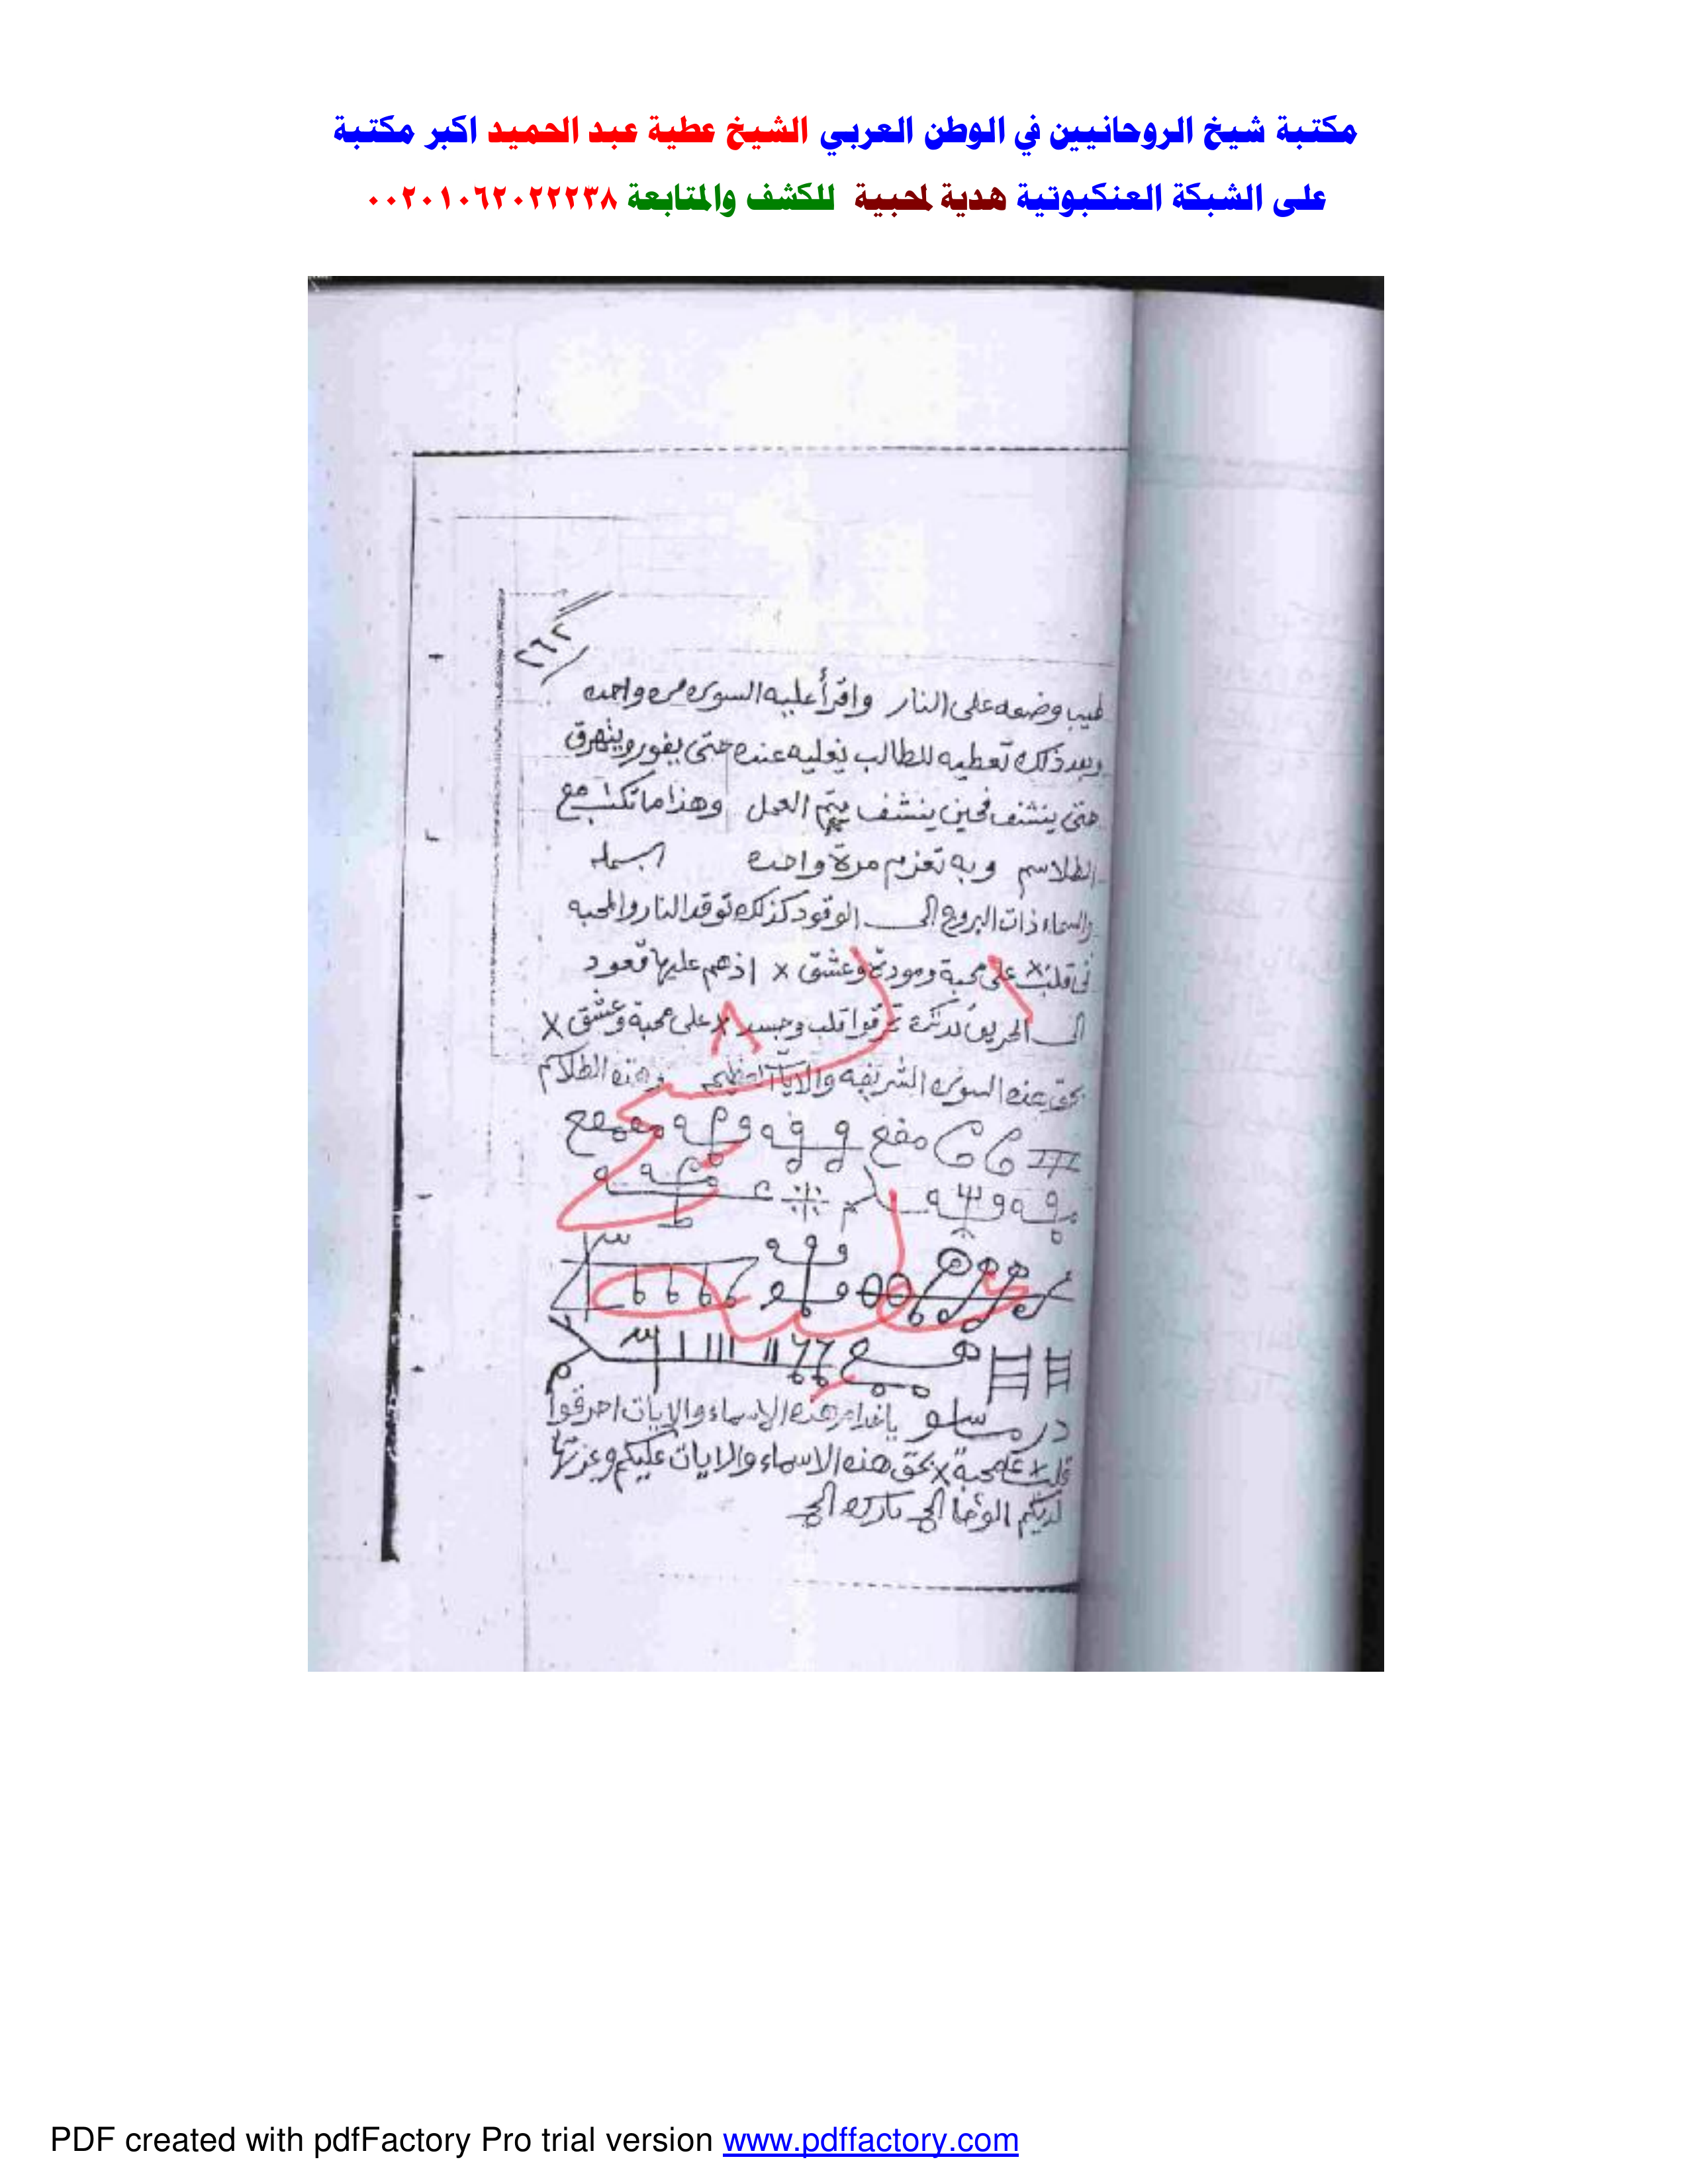 مكتبة شيخ الروحانيين في الوطن العربي الشيخ عطية عبد الحميد اكبر مكتبة
على الشبكة العنكبوتية هدية لمحبية للكشف والمتابعة ٠٠٢٠١٠٦٢٠٢٢٢٣٨
٢٦٢
طيب وضعه على النار واقرأ عليه السوره مره واحده
وبعد ذلك تعطيه للطالب يغليه عنده حتى يفور وينهرق
حتى ينشف فحين ينشف يتم العمل وهذا ما تكتب مع
الطلاسم وبه تعزم مرة واحده
والسماء ذات البروج الى الوقود كذلك توقد النار والمحبه
فى قلب x على محبة ومودة وعشق x اذهم عليها قعود
الى الحريق كذلك تحرقوا قلب وجسد x على محبة وعشق x
بحق هذه السوره الشريفه والآيات العظيمه وهذه الطلاسم
يا خدام هذه الاسماء والايات احرقوا
قلب x على محبة x بحق هذه الاسماء والايات عليكم وعزتها
لديكم الوحا
PDF created with pdfFactory Pro trial version www.pdffactory.com